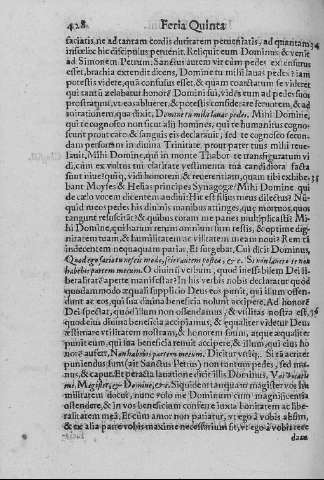 428 Feria Quinta
faciatis, ne ad tantam cordis duritatem perueniatis, ad quantam 34
infœlix hic discipulus peruenit. Reliquit eum Dominus & venit
ad Simonem Petrum. Sanctus autem vir cùm pedes ei exhibiturus
esset, brachia extendit dicens, Domine tu mihi lauas pedes? iam
potestis videre, quā confusus esset, & quàm coactatum se videret
qui tantū zelabatur honorē Domini sui, vidēs eum ad pedes suos
prostratum, vt eas ablueret, & potestis considerare feruorem, & ad
mirationem, qua dixit, Domine tu mihi lauas pedes. Mihi Domine,
qui te cognosco non sicut alij homines, qui te humanitùs cognos-
scunt prout caro & sanguis eis declarauit, sed te cognosco secun-
dam personam in diuina Trinitate, prout pater tuus mihi reue-
lauit, Mihi Domine, qui in monte Thabor te transfiguratum vi
di, cùm ex vultus tui claritate vestimenta tua candidiora facta
sunt niue? quiq; vidi honorem, & reuerentiam, quam tibi exhibe- 35
bant Moyses & Helias principes Synagogæ? Mihi Domine qui
de cælo vocem dicentem audiui: Hic est filius meus dilectus? Nū-
quid meos pedes his diuinis manibus attinges, quę mortuos quos
tangunt resuscitāt? & quibus coram me panes multiplicasti? Mi-
hi Domine, qui harum rerum omnium sum testis, & optime dig-
nitatem tuam, & humilitatem ac vilitatem meam noui? Rem tā
indecentem nequaquam patiar. Et surgebat, Cui dicit Dominus,
Quod ego facio tu nescis modò, scies autem postea, &c. Si non lauero te non
habebis partem mecum. O diuinū verbum, quod ineffabilem Dei li-
beralitatē aperte manifestat? In his verbis nobis declaratur quòd
quodammodo æquali supplicio Deus eos punit, qui illum offen-
dunt ac eos, qui sua diuina beneficia nolunt accipere. Ad honorē
Dei spectat, quòd illum non offendamus, & vtilitas nostra est, 36
quòd eius diuina beneficia accipiamus, & æqualiter videtur Deus
æstimare vtilitatem nostram, & honorem suum, atque æqualiter
punit eum, qui sua beneficia renuit accipere, & illum, qui eius ho
norē aufert, Non habebis partem mecum. Dicitur vtiq;. Si tā acriter
puniendus sum (ait Sanctus Petrus) non tantum pedes, sed ma-
nus, & caput. Et peracta lauatione dicit illis Dominus. Vos vocatis
mi. Magister, & Domine, &c. Siquidem tanquam magister vos hu-
militatem docui, nunc volo me Dominum cum magnificentia
ostendere, & in vos beneficium conferre iuxta bonitatem ac libe-
ralitatem meā. Et cùm amor non patiatur, vt ego à vobis absim,
& ex alia parte vobis maxime necessarium sit, vt ego à vobis rece
dam